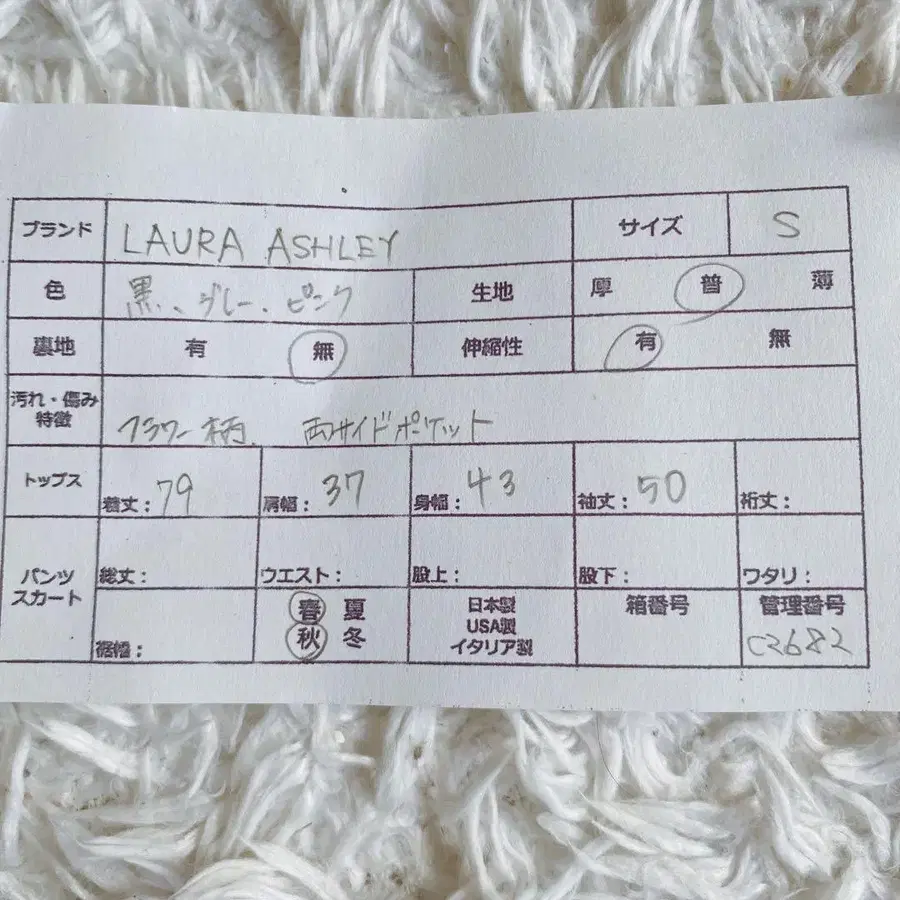 ブランド LAURA ASHLEY サイズ S
色 黒、グレー、ピンク 生地 厚 普 薄
裏地 有 無 伸縮性 有 無
汚れ・傷み
特徴 フラワー柄、 両サイドポケット
トップス 着丈:79 肩幅:37 身幅:43 袖丈:50 裄丈:
パンツ
スカート 総丈: ウエスト: 股上: 股下: ワタリ:
裾幅: 春 夏
秋 冬
日本製
USA製
イタリア製
箱番号
管理番号
C2682